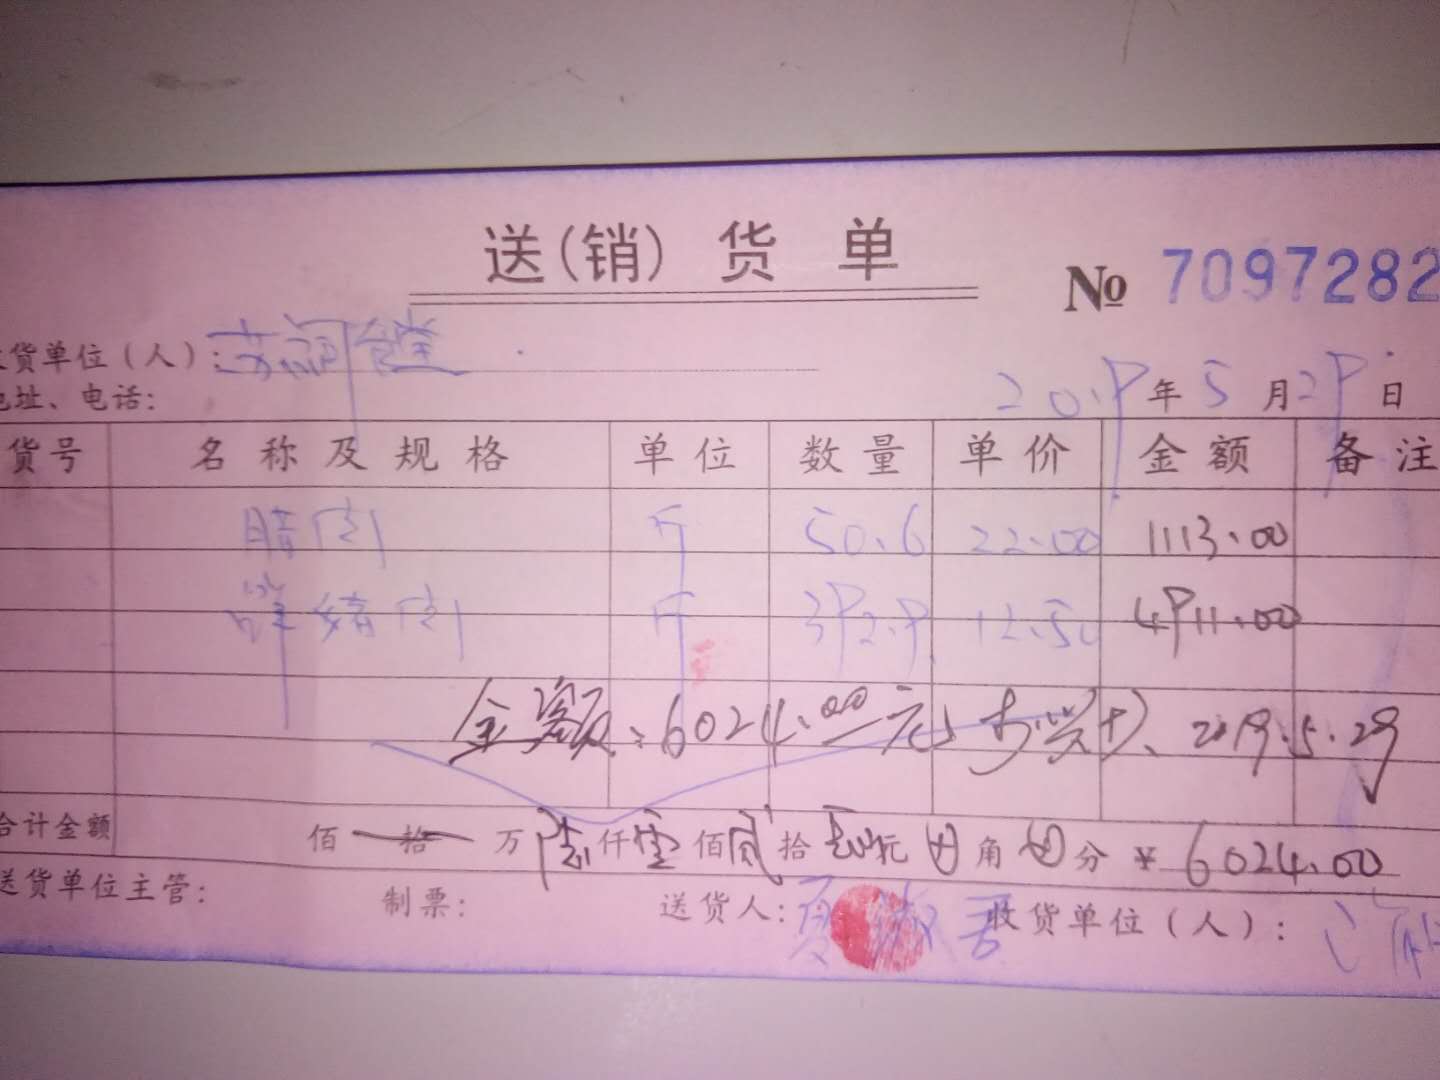 送(销)货单
№ 7097282
货单位(人):食堂
址、电话:
2019年5月29日
货号 名称及规格 单位 数量 单价 金额 备注
腊肉 斤 50.6 22.00 1113.00
鲜猪肉 斤 392.9 12.50 4911.00
金额:6024.00元 2019.5.29
合计金额 佰拾万陆仟零佰贰拾肆元角分 ¥6024.00
送货单位主管: 制票: 送货人:夏 收货单位(人):